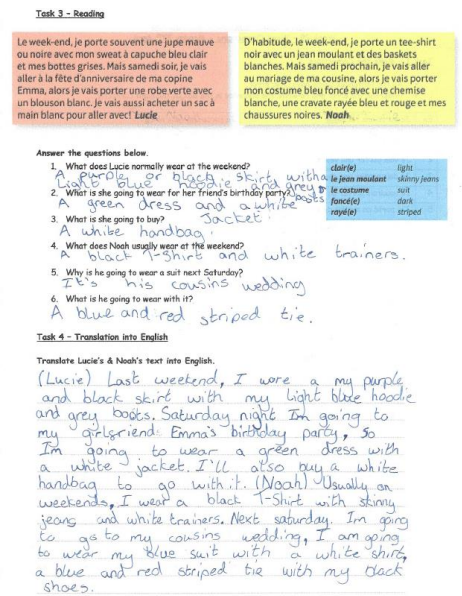 Task 3 – Reading
Le week-end, je porte souvent une jupe mauve
ou noire avec mon sweat à capuche bleu clair
et mes bottes grises. Mais samedi soir, je vais
aller à la fête d'anniversaire de ma copine
Emma, alors je vais porter une robe verte avec
un blouson blanc. Je vais aussi acheter un sac à
main blanc pour aller avec! Lucie
D'habitude, le week-end, je porte un tee-shirt
noir avec un jean moulant et des baskets
blanches. Mais samedi prochain, je vais aller
au mariage de ma cousine, alors je vais porter
mon costume bleu foncé avec une chemise
blanche, une cravate rayée bleu et rouge et mes
chaussures noires. Noah
Answer the questions below.
1. What does Lucie normally wear at the weekend?
A purple or black skirt with a
Light blue hoodie and grey boots
2. What is she going to wear for her friend's birthday party?
A green dress and a white
Jacket.
3. What is she going to buy?
A white handbag.
4. What does Noah usually wear at the weekend?
A black T-Shirt and white trainers.
5. Why is he going to wear a suit next Saturday?
It's his cousins wedding
6. What is he going to wear with it?
A blue and red striped tie.
clair(e) light
le jean moulant skinny jeans
le costume suit
foncé(e) dark
rayé(e) striped
Task 4 – Translation into English
Translate Lucie's & Noah's text into English.
(Lucie) Last weekend, I wore a my purple
and black skirt with my light blue hoodie
and grey boots. Saturday night Im going to
my girlfriend: Emma's birthday party, so
Im going to wear a green dress with
a white jacket. I'll also buy a white
handbag to go with it. (Noah) Usually on
weekends, I wear a black T-Shirt with skinny
jeans and white trainers. Next saturday. Im going
to go to my cousins wedding, I am going
to wear my blue suit with a white shirt,
a blue and red striped tie with my black
shoes.